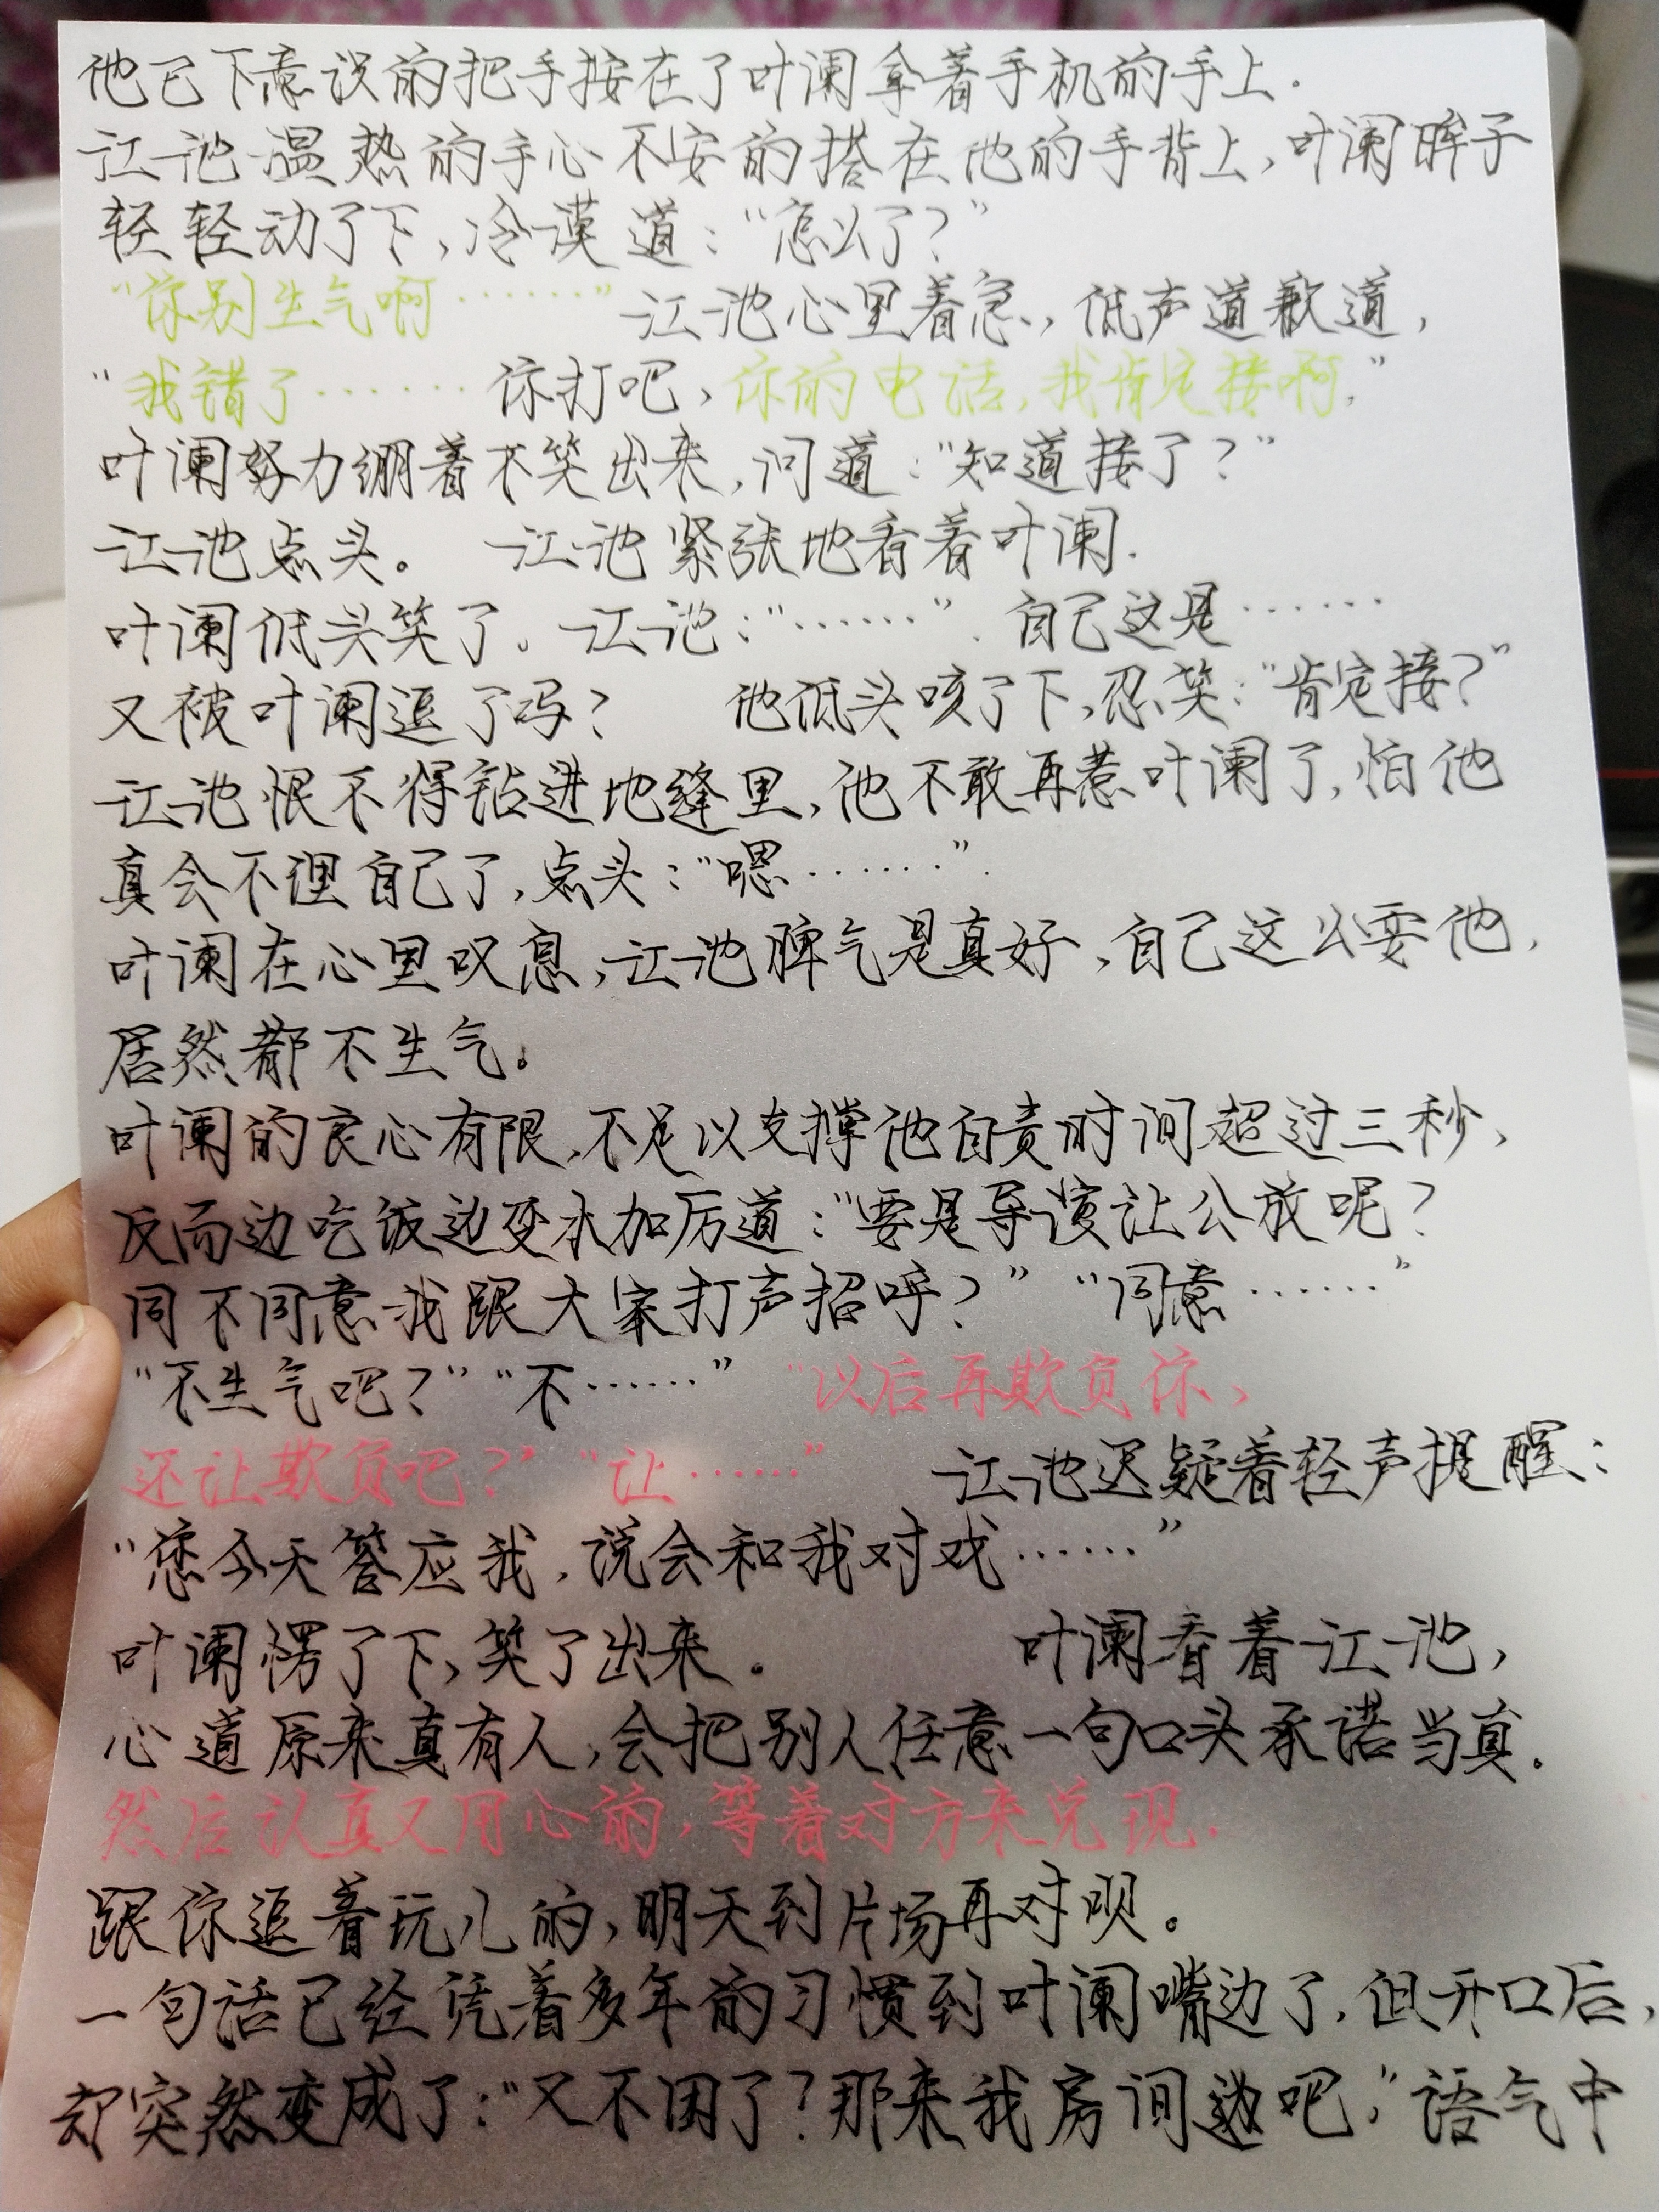 他已下意识的把手按在了叶阑拿着手机的手上.
江池温热的手心不安的搭在他的手背上,叶阑眸子
轻轻动了下,冷漠道:“怎么了?”
“你别生气啊……”江池心里着急,低声道歉道,
“我错了……你打吧,你的电话,我肯定接啊,”
叶阑努力绷着不笑出来,问道:“知道接了?”
江池点头。 江池紧张地看着叶阑.
叶阑低头笑了。江池:“……”.自己这是……
又被叶阑逗了吗? 他低头咳了下,忍笑:“肯定接?”
江池恨不得钻进地缝里,他不敢再惹叶阑了,怕他
真会不理自己了,点头:“嗯……”.
叶阑在心里叹息,江池脾气是真好,自己这么耍他,
居然都不生气。
叶阑的良心有限,不足以支撑他自责时间超过三秒,
反而边吃饭边变本加厉道:“要是导演让公放呢?
同不同意我跟大家打声招呼?” “同意……”
“不生气吧?”“不……” “以后再欺负你,
还让欺负吧?”“让……” 江池迟疑着轻声提醒:
“您今天答应我,说会和我对戏……”
叶阑愣了下,笑了出来. 叶阑看着江池,
心道原来真有人,会把别人任意一句口头承诺当真.
然后认真又用心的,等着对方来兑现.
跟你逗着玩儿的,明天到片场再对呗。
一句话已经凭着多年的习惯到叶阑嘴边了,但开口后,
却突然变成了:“又不困了?那来我房间边吧,”语气中